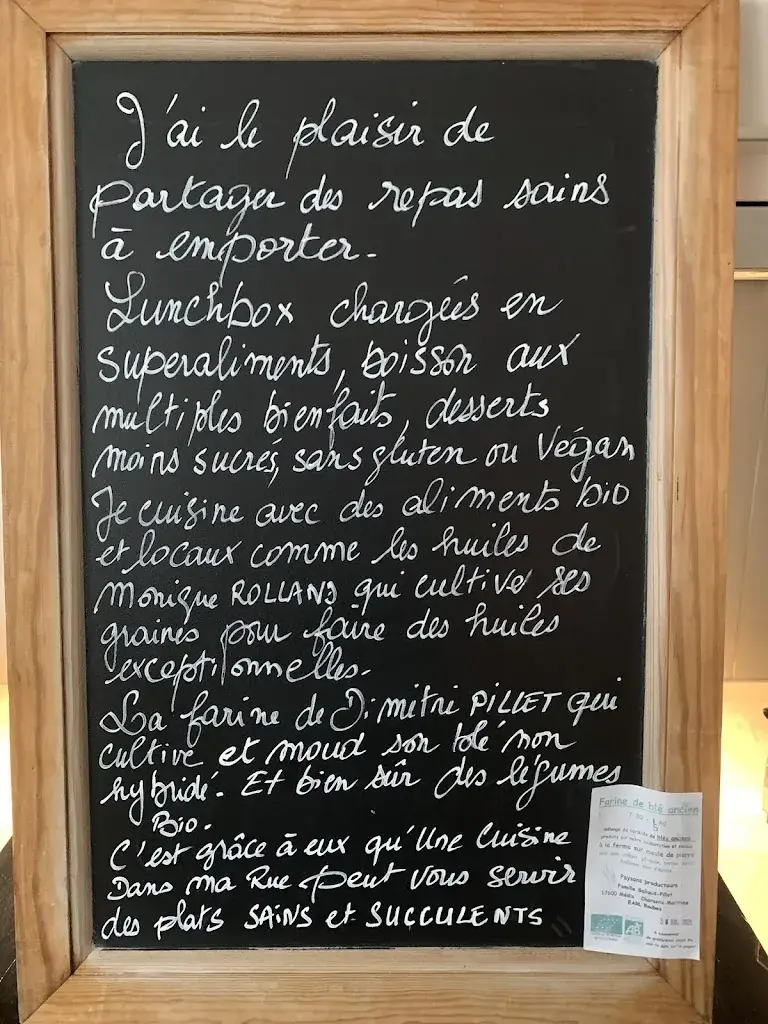 J'ai le plaisir de
partager des repas sains
à emporter.
Lunchbox chargées en
superaliments, boisson aux
multiples bienfaits, desserts
moins sucrés, sans gluten ou végan
Je cuisine avec des aliments bio
et locaux comme les huiles de
Monique ROLLAND qui cultive ses
graines pour faire des huiles
exceptionnelles.
La farine de Dimitri PILLET qui
cultive et moud son blé non
hybridé. Et bien sûr des légumes
Bio.
C'est grâce à eux qu'Une Cuisine
Dans Ma Rue peut vous servir
des plats SAINS et SUCCULENTS
Farine de blé ancien
à la ferme sur meule de pierre
Paysans producteurs
17600 Médis Charente-Maritime
AB